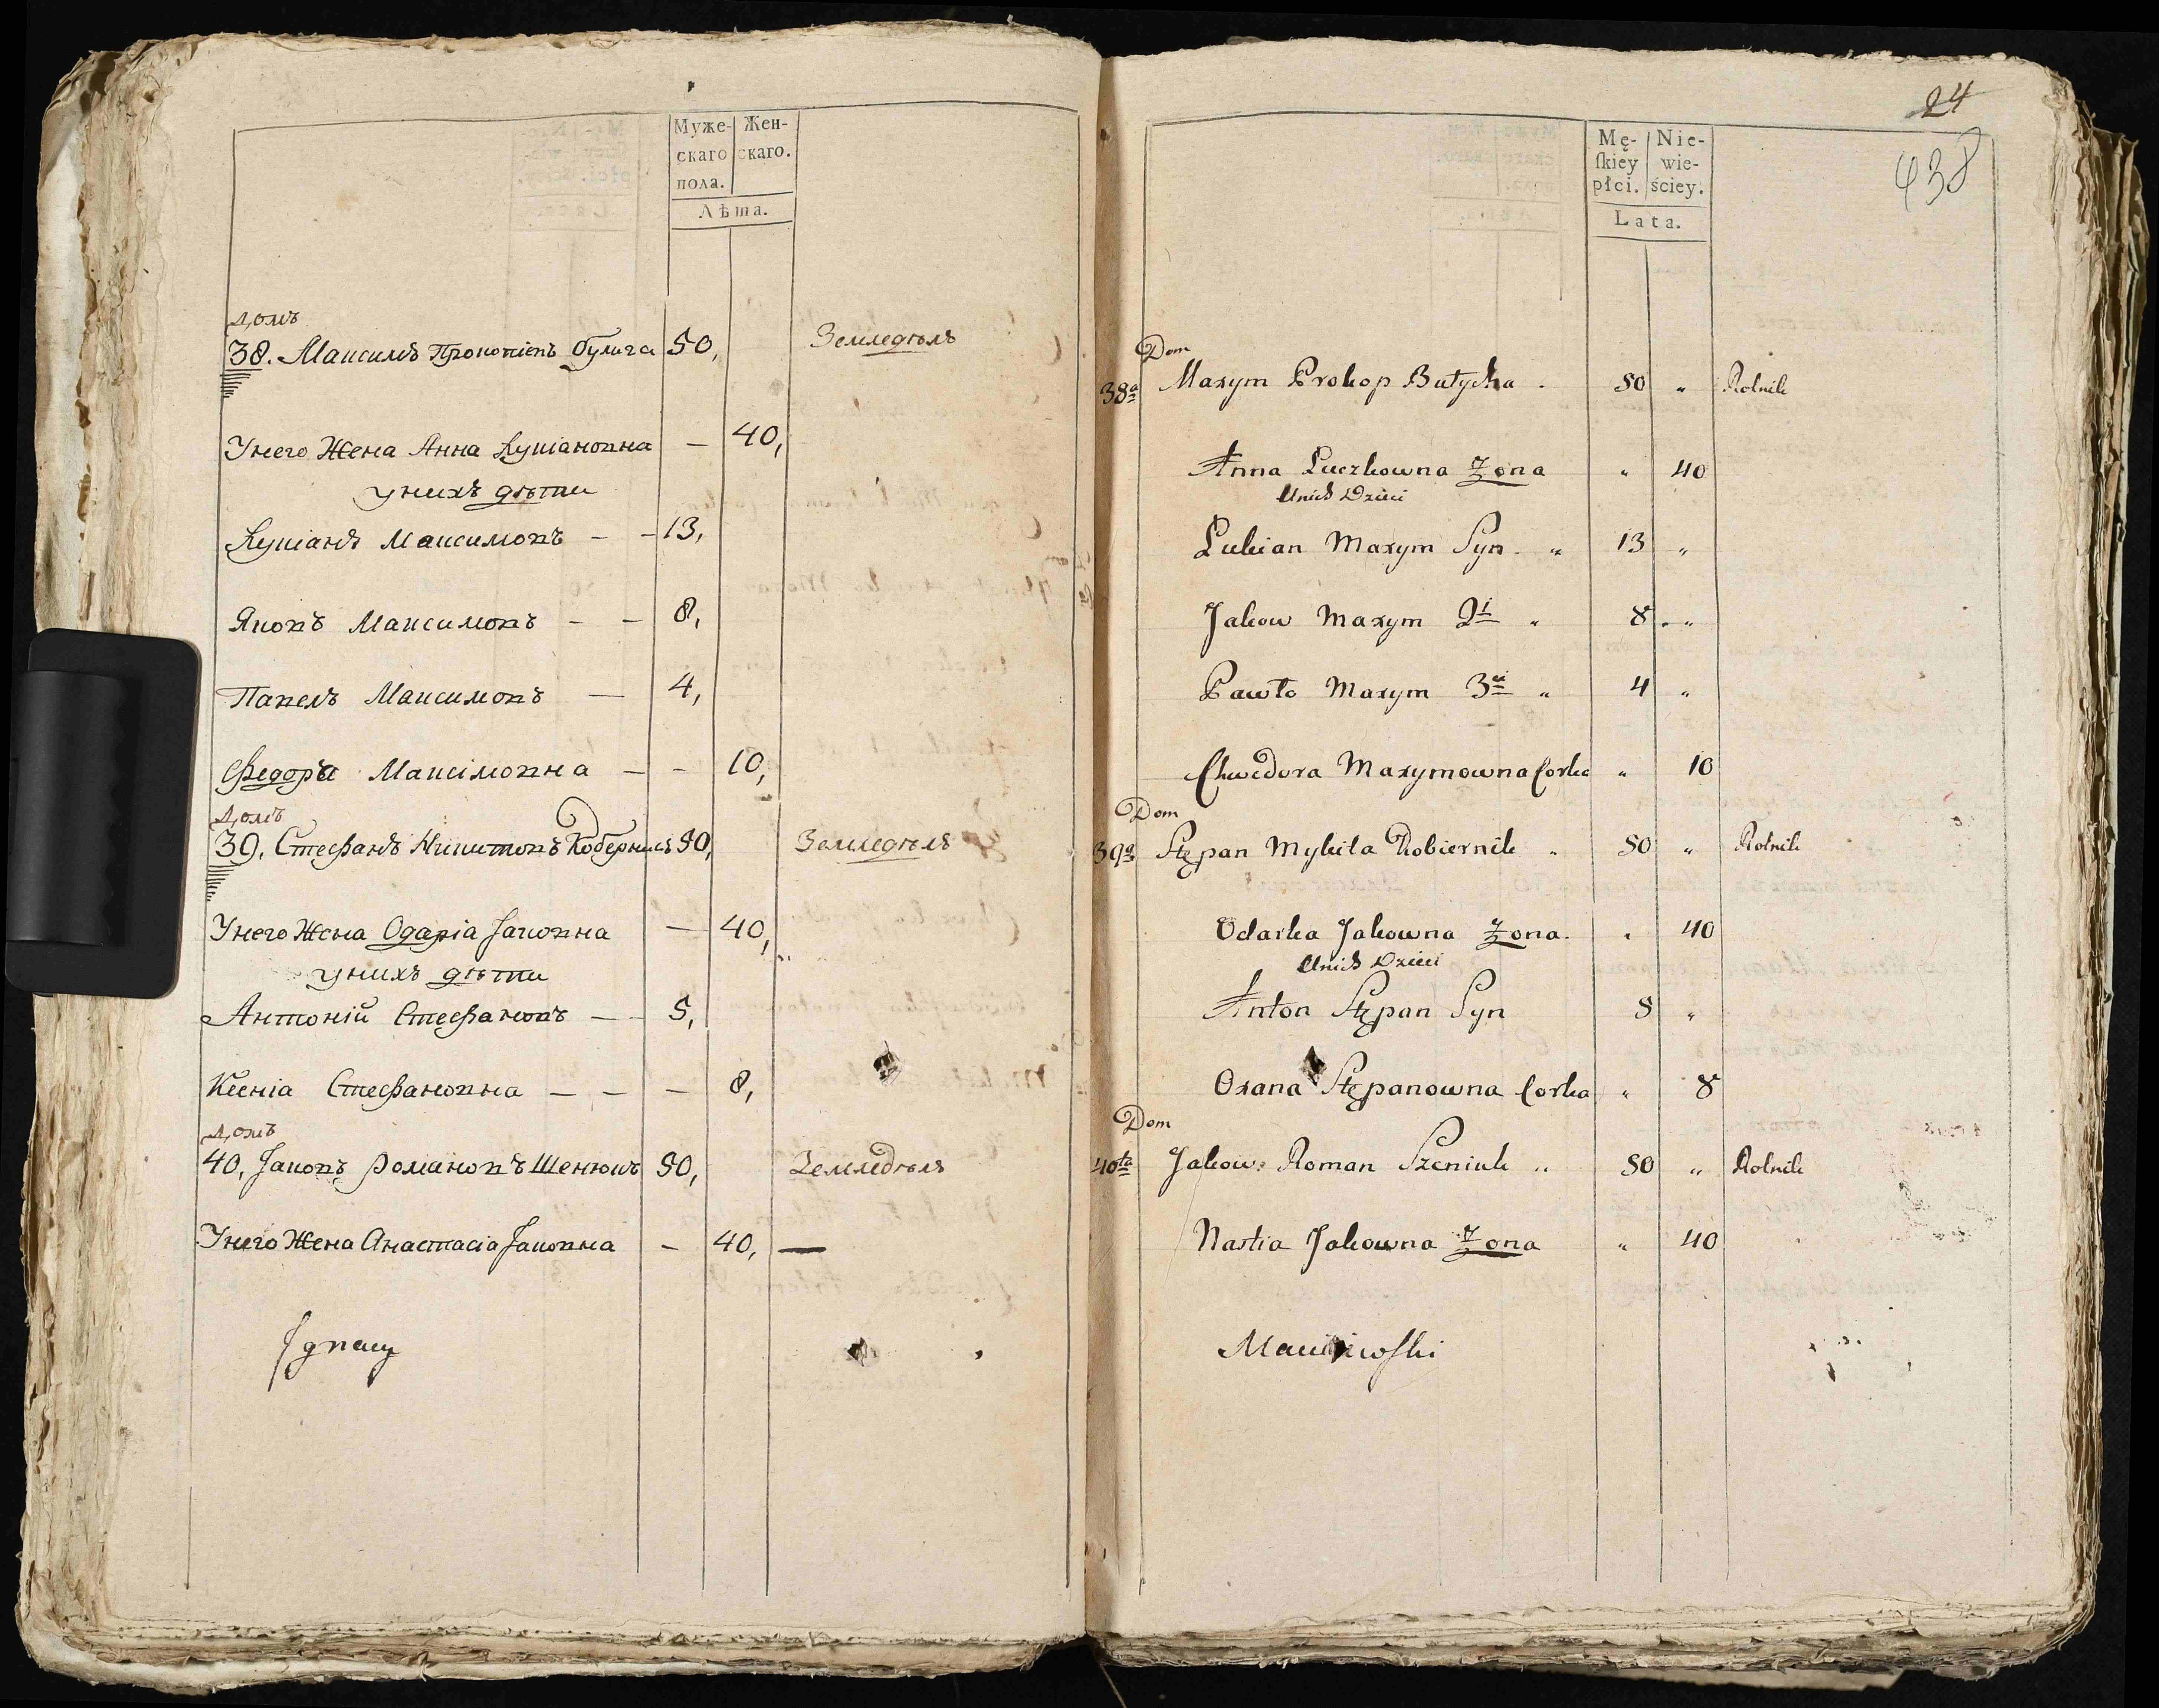 Муже-
скаго
пола.
Жен-
скаго.
Лѣта.
домъ
38. Максимъ Прокопіевъ булыга 50, Земледѣль
Унего Жена Анна Лукіановна — 40,
унихъ дѣти
Лукіанъ Максимовъ — — 13,
Яковъ Максимовъ — — 8,
Павелъ Максимовъ — 4,
Федора Максімовна — — 10,
домъ
39. Стефанъ Никитовъ Коберникъ 50, Земледѣль
Унего Жена Одарія Јаковна — 40,
унихъ дѣти
Антоній Стефановъ — — 5,
Ксенія Стефановна — — — 8,
домъ
40, Јаковъ романовъ Шенюкъ 50, Земледѣль
Унего Жена Анастасіа Јаковна — 40, —
Jgnacy
24
438
Mę-
ſkiey
płci.
Nie-
wie-
ściey.
Lata.
Dom
38a Maxym Prokop Bułyha . 50 „ Rolnik
Anna Luczkowna Żona „ 40
Unich Dzieci
Lukian Maxym Syn „ 13 „
Jakow Maxym 2i „ 8 „
Pawło Maxym 3ci „ 4 „
Chwedora Maxymowna Corka „ 10
Dom
39a Stepan Mykita Kobiernik „ 50 „ Rolnik
Odarka Jakowna Żona. „ 40
Unich Dzieci
Anton Stepan Syn 5 „
Oxana Stepanowna Corka „ 8
Dom
40ta Jakow Roman Szeniuk „ 50 „ Rolnik
Nastia Jakowna Żona „ 40